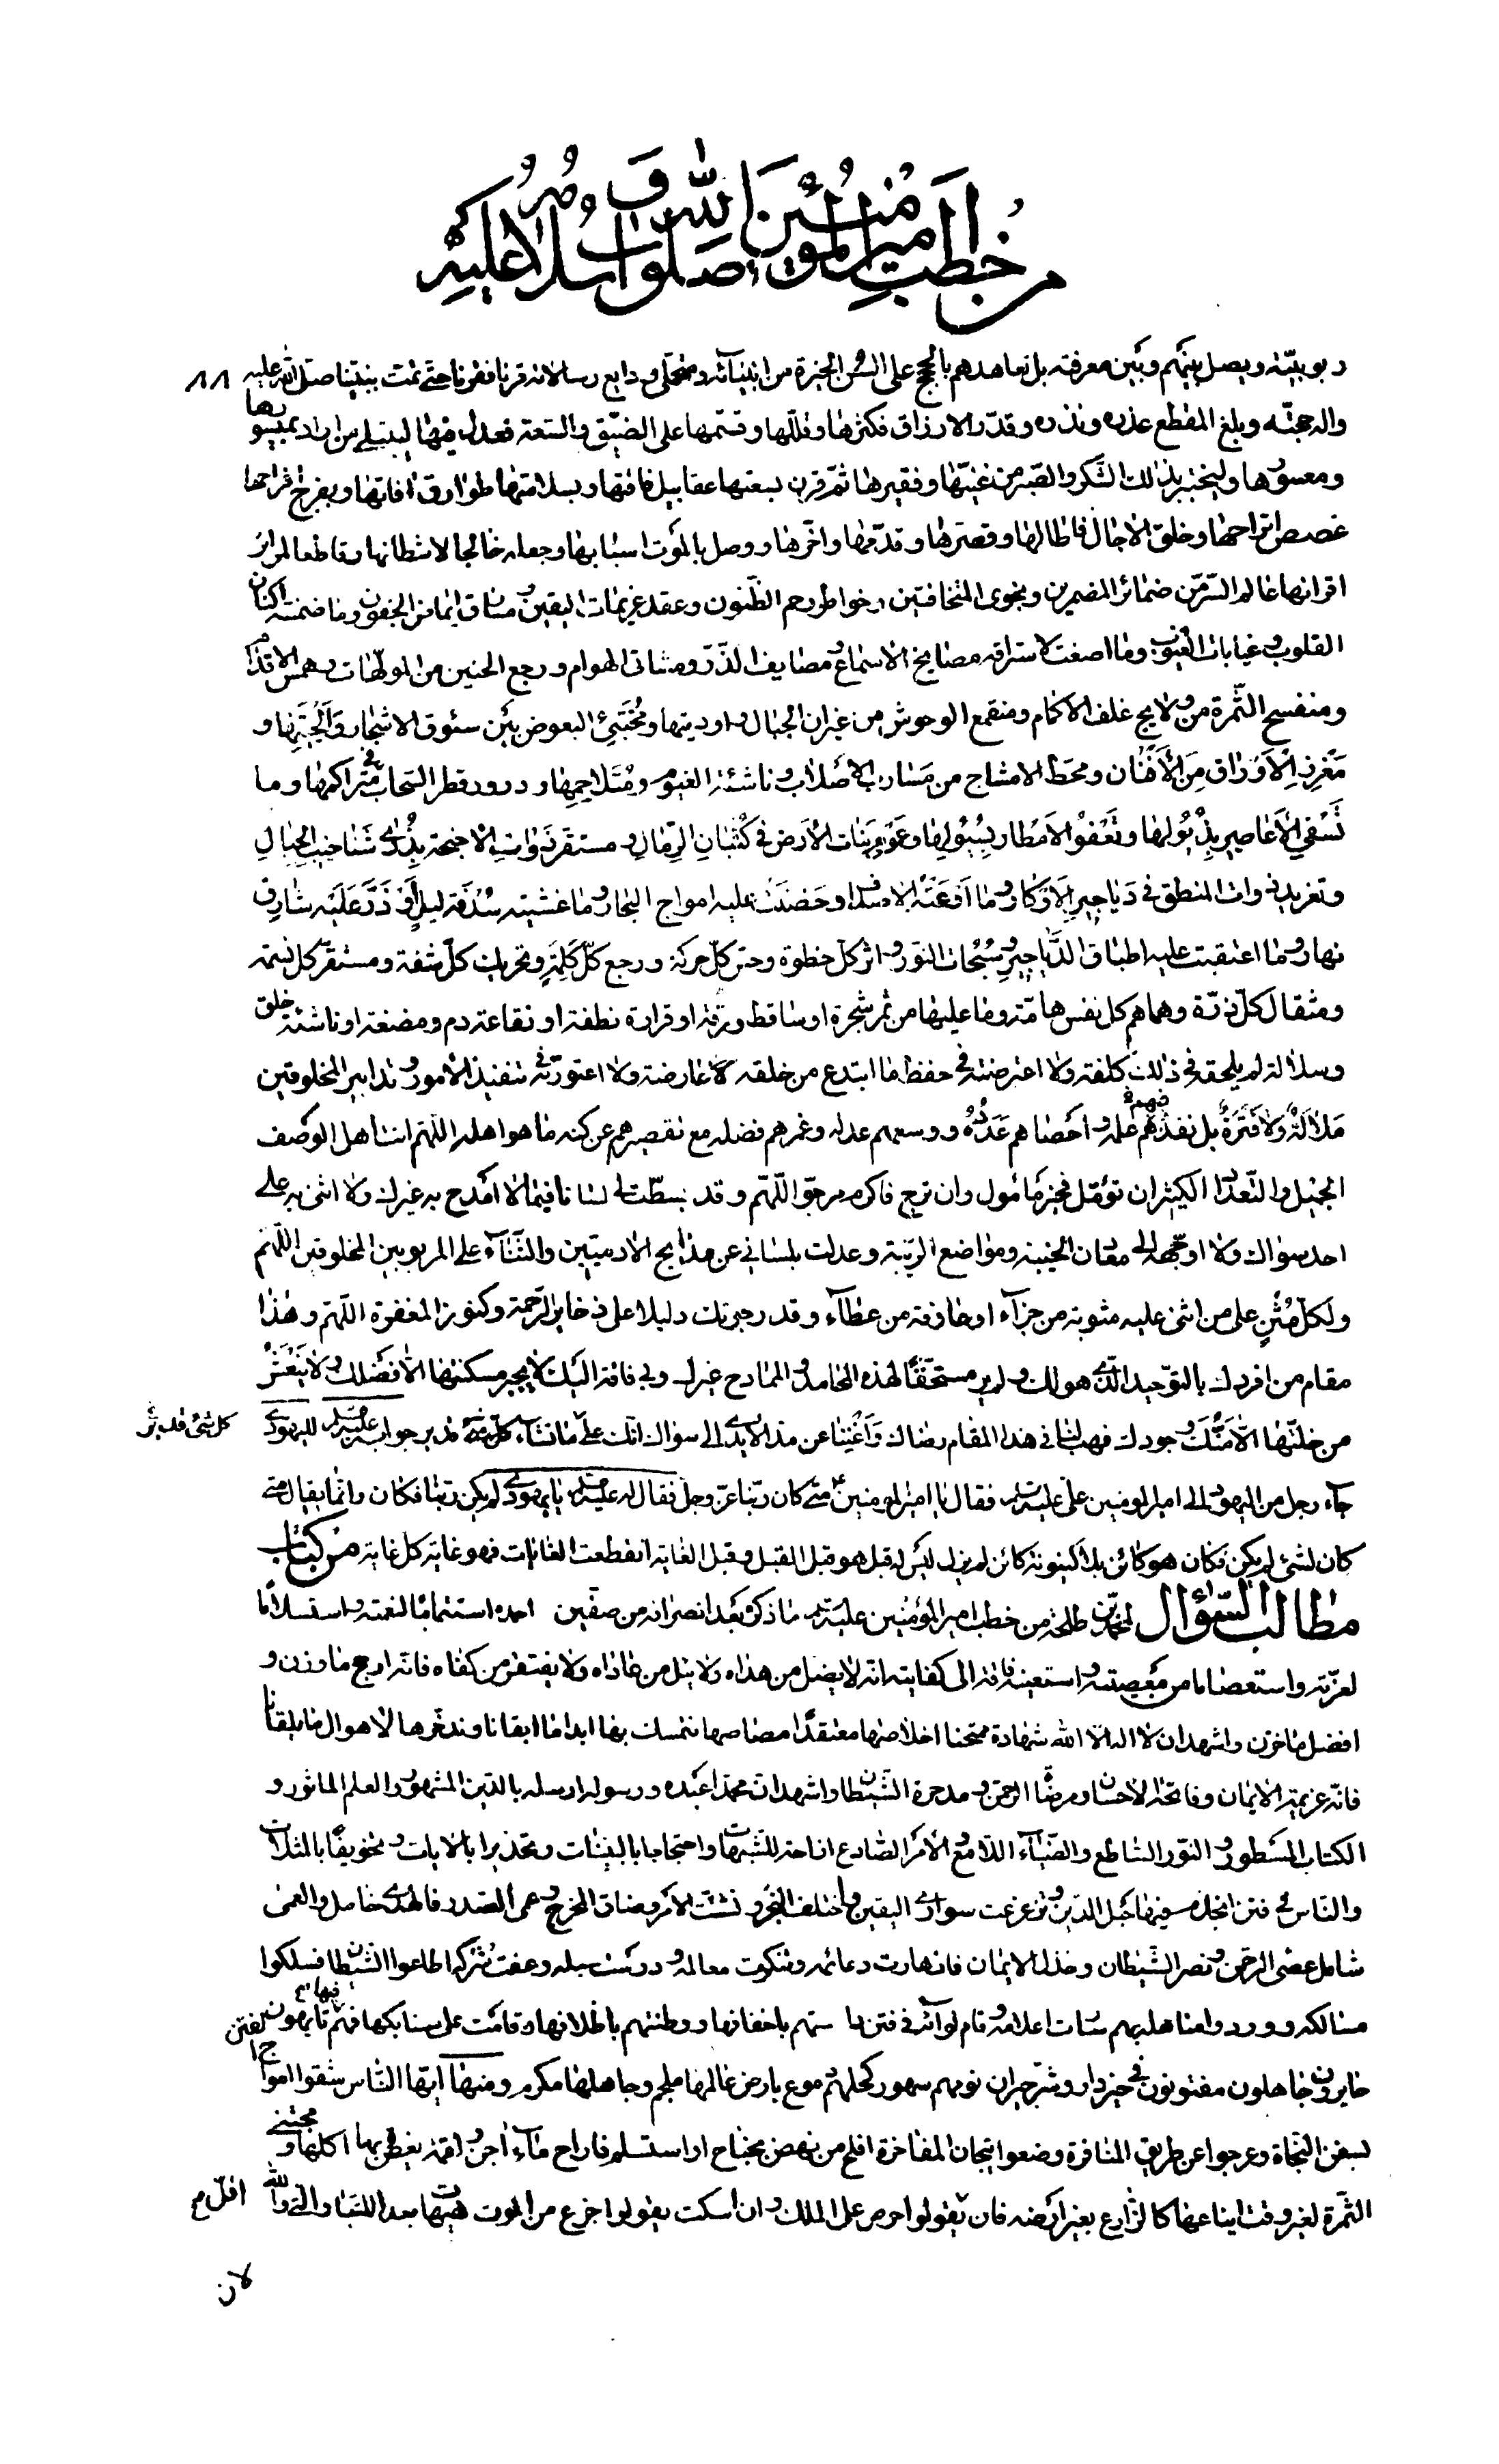 من خطب امير المؤمنين صلوات الله وسلامه عليه
ربوبيته ويصل بينهم وبين معرفته بل تعاهدهم بالحجج على السن الخيرة من انبيائه ومتحملى ودايع رسالاته قرنا فقرنا حتى تمت بنبينا صلى الله عليه
٨٨
واله حجته وبلغ المقطع عذره ونذره وقدر الارزاق فكثرها وقللها وقسمها على الضيق والسعة فعدل فيها ليبتلى من اراد بميسورها
ومعسورها وليختبر بذلك الشكر والصبر من غنيها وفقيرها ثم قرن بسعتها عقابيل فاقتها وبسلامتها طوارق افاتها وبفرج افراحها
غصص اتراحها وخلق الاجال فاطالها وقصرها وقدمها واخرها ووصل بالموت اسبابها وجعله خالجا لاشطانها وقاطعا لمرائر
اقرانها عالم السر من ضمائر المضمرين ونجوى المتخافتين وخواطر رجم الظنون وعقد عزيمات اليقين ومسارق ايماض الجفون وما ضمنته اكنان
القلوب وغيابات الغيوب وما اصغت لاستراقه مصايخ الاسماع ومصايف الذر ومشاتى الهوام ورجع الحنين من المولهات وهمس الاقدام
ومنفسح الثمرة من ولايج غلف الاكمام ومنقمع الوحوش من غيران الجبال واوديتها ومختبئ البعوض بين سوق الاشجار والحيتها و
مغرز الاوراق من الافنان ومحط الامشاج من مسارب الاصلاب وناشئة الغيوم ومتلاحمها ودرور قطر السحاب في متراكمها وما
تسفي الاعاصير بذيولها وتعفو الامطار بسيولها وعوم بنات الارض في كثبان الرمال ومستقر ذوات الاجنحة بذرى شناخيب الجبال
وتغريد ذوات المنطق في دياجير الاوكار وما اوعته الاصداف وحضنت عليه امواج البحار وما غشيته سدفة ليل او ذر عليه شارق
نهار وما اعتقبت عليه اطباق الدياجير وسبحات النور واثر كل خطوة وحس كل حركة ورجع كل كلمة وتحريك كل شفة ومستقر كل نسمة
ومثقال كل ذرة وهماهم كل نفس هامة وما عليها من ثمر شجرة او ساقط ورقة او قرارة نطفة او نقاعة دم ومضغة او ناشئة خلق
وسلالة لم يلحقه في ذلك كلفة ولا اعترضته في حفظ ما ابتدع من خلقه عارضة ولا اعتورته في تنفيذ الامور وتدابير المخلوقين
ملالة ولا فترة بل نفذ فيهم علمه واحصاهم عده ووسعهم عدله وغمرهم فضله مع تقصيرهم عن كنه ما هو اهله اللهم انت اهل الوصف
الجميل والتعداد الكثير ان تؤمل فخير مامول وان ترج فاكرم مرجو اللهم وقد بسطت لى لسانا فيما لا امدح به غيرك ولا اثنى به على
احد سواك ولا اوجهه الى معادن الخيبة ومواضع الريبة وعدلت بلسانى عن مدايح الادميين والثناء على المربوبين المخلوقين اللهم
ولكل مثن على من اثنى عليه مثوبة من جزاء او عارفة من عطاء وقد رجوتك دليلا على ذخاير الرحمة وكنوز المغفرة اللهم وهذا
مقام من افردك بالتوحيد الذى هو لك ولم ير مستحقا لهذه المحامد والممادح غيرك وبى فاقة اليك لا يجبر مسكنتها الا فضلك ولا ينعش
من خلتها الا منك وجودك فهب لنا فى هذا المقام رضاك واغننا عن مد الايدى الى سواك انك على ما تشاء قدير جواب للیهودى
كل شئ قدير
جاء رجل من اليهود الى امير المؤمنين على عليه فقال يا امير المؤمنين متى كان ربنا عز وجل فقال له يا يهودى لم يكن ربنا فكان وانما يقال متى
كان لشئ لم يكن فكان هو كائن بلا كينونة كائن لم يزل ليس له قبل هو قبل القبل وقبل الغاية انقطعت الغايات فهو غاية كل غاية من كتاب
مطالب السؤال لمحمد بن طلحة من خطب امير المؤمنين عليه ما ذكره بعد انصرافه من صفين احمده استتماما لنعمته واستسلاما
لعزته واستعصاما من معصيته واستعينه فاقة الى كفايته انه لا يضل من هداه ولا يئل من عاداه ولا يفتقر من كفاه فانه ارجح ما وزن و
افضل ما خزن واشهد ان لا اله الا الله شهادة ممتحنا اخلاصها معتقدا مصاصها نتمسك بها ابدا ما ابقانا وندخرها لاهوال ما يلقانا
فانه عزيمة الايمان وفاتحة الاحسان ومرضاة الرحمن ومدحرة الشيطان واشهد ان محمدا عبده ورسوله ارسله بالدين المشهور والعلم الماثور و
الكتاب المسطور والنور الساطع والضياء اللامع والامر الصادع ازاحة للشبهات واحتجاجا بالبينات وتحذيرا بالايات وتخويفا بالمثلات
والناس فى فتن انجذم فيها حبل الدين وتزعزعت سوارى اليقين واختلف النجر وتشتت الامر وضاق المخرج وعمى المصدر فالهدى خامل والعمى
شامل عصى الرحمن ونصر الشيطان وخذل الايمان فانهارت دعائمه وتنكرت معالمه ودرست سبله وعفت شركه اطاعوا الشيطان فسلكوا
مسالكه ووردوا مناهله بهم سارت اعلامه وقام لوائه فى فتن داستهم باخفافها ووطئتهم باظلافها وقامت على سنابكها فهم فيها تايهون
حايرون جاهلون مفتونون في خير دار وشر جيران نومهم سهور وكحلهم دموع بارض عالمها ملجم وجاهلها مكرم ومنها ايها الناس شقوا امواج الفتن
بسفن النجاة وعرجوا عن طريق المنافرة وضعوا تيجان المفاخرة افلح من نهض بجناح او استسلم فاراح ماء اجن ولقمة يغص بها اكلها ومجتنى
الثمرة لغير وقت ايناعها كالزارع بغير ارضه فان يقولوا حرص على الملك وان اسكت يقولوا جزع من الموت هيهات بعد اللتيا والتى والله
اقل م
لان